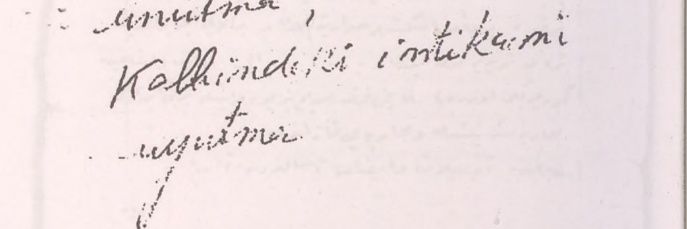 unutma,
Kalbimdeki intikamı
uyutma